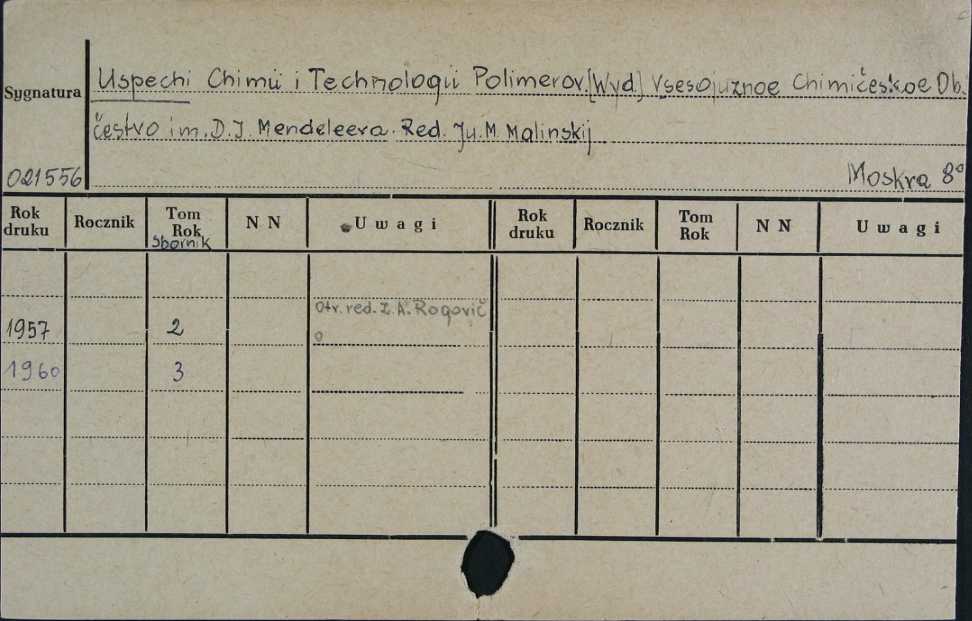 Uspechi Chimii i Technologii Polimerov. [Wyd.] Vsesojuznoe Chimičeskoe Ob.
Sygnatura
čestvo im. D. I. Mendeleeva. Red. Ju. M. Malinskij
021556
Moskva 8°
Rok druku Rocznik Tom Rok Sbornik N N Uwagi Rok druku Rocznik Tom Rok N N Uwagi
Otv. red. Z. A. Rogovič
1957 2
1960 3